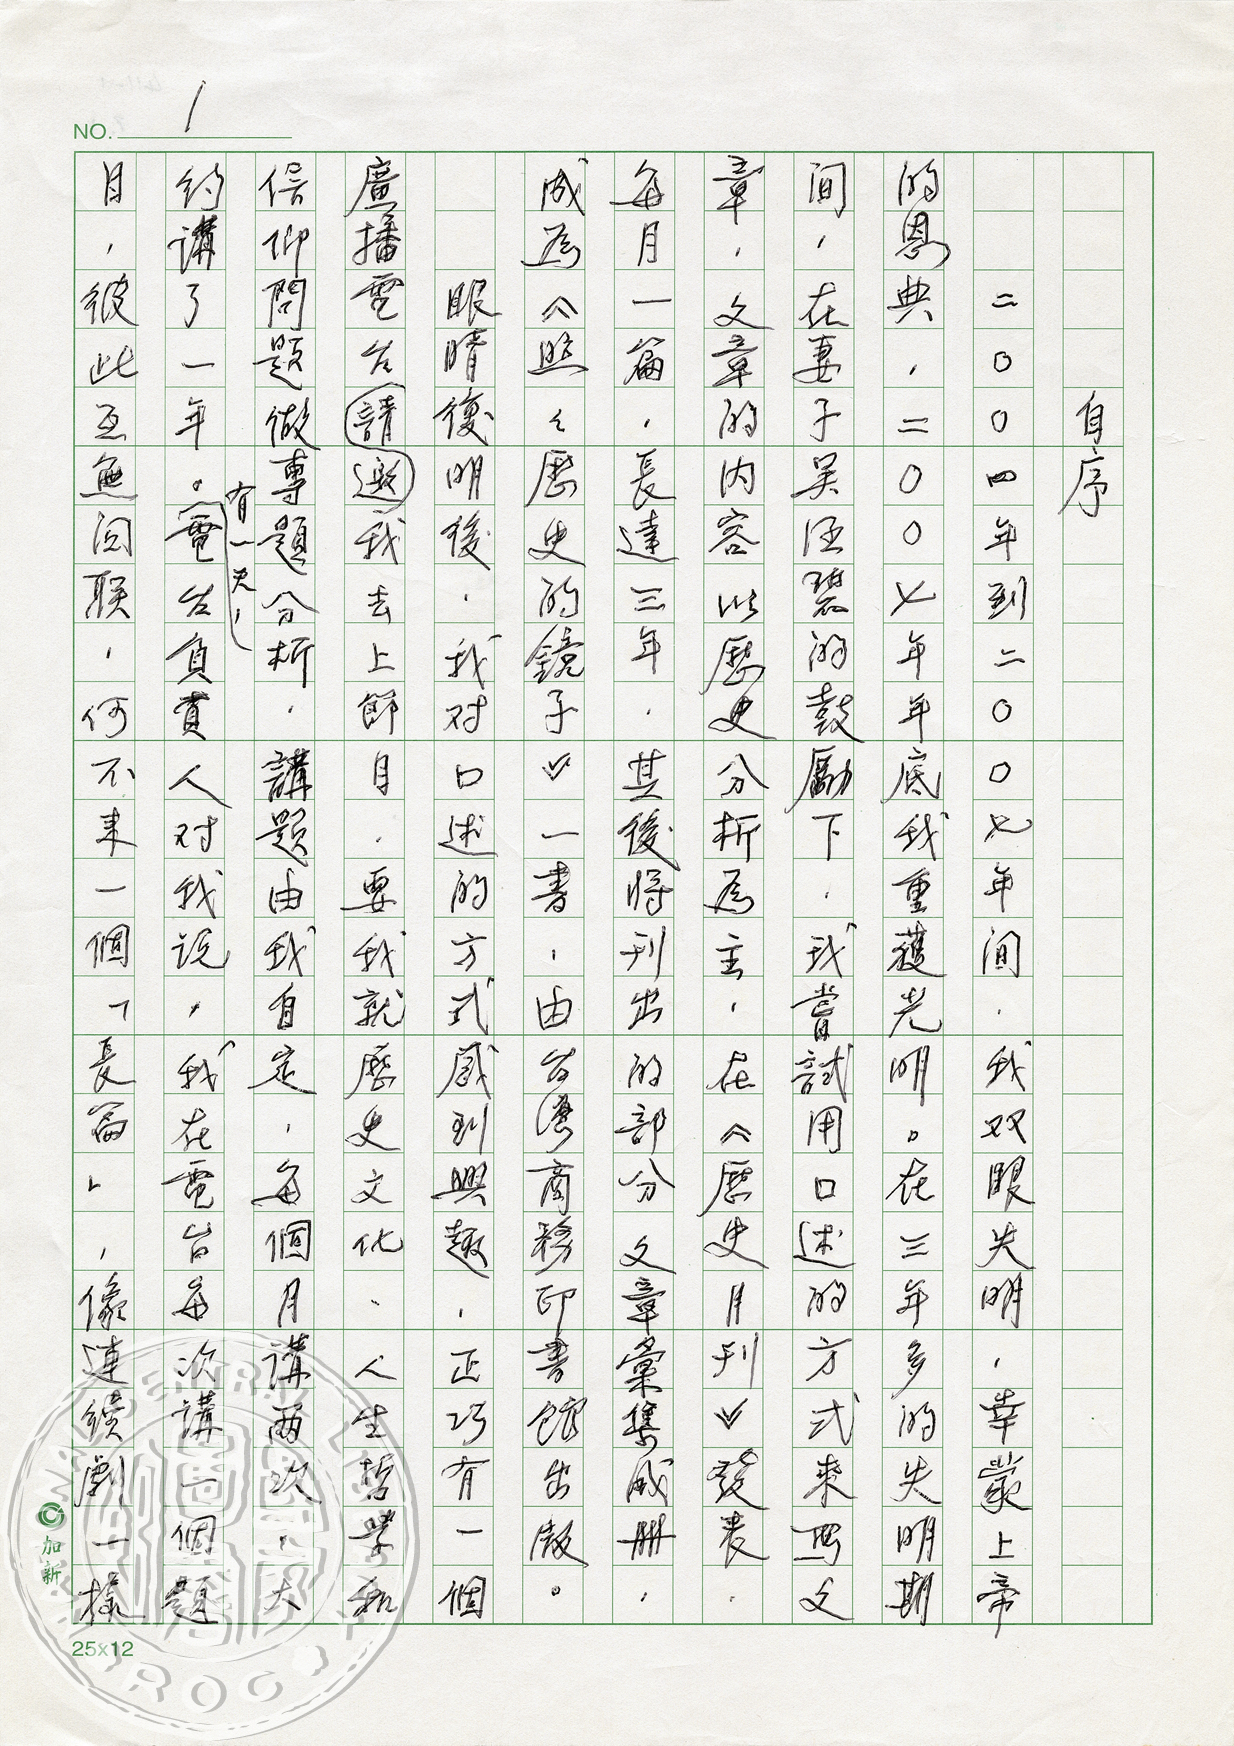 NO. 1
自序
二〇〇四年到二〇〇七年間，我双眼失明，幸蒙上帝
的恩典，二〇〇七年年底我重獲光明。在三年多的失明期
间，在妻子吴涵碧的鼓勵下，我嘗試用口述的方式來写文
章，文章的内容以歷史分析為主，在《歷史月刊》發表，
每月一篇，長達三年，其後將刊出的部分文章彙集成冊，
成為《照々歷史的鏡子》一書，由台灣商務印書館出版。
眼睛復明後，我对口述的方式感到興趣，正巧有一個
廣播電台請邀我去上節目，要我就歷史文化、人生哲学和
信仰問題做專題分析，講題由我自定，每個月講兩次，大
有一天，
約講了一年。電台負責人对我説，我在電台每次講一個題
目，彼此互無関联，何不来一個「長篇」，像連續劇一樣
加新
25x12
NATIONAL CENTRAL LIBRARY
ROC